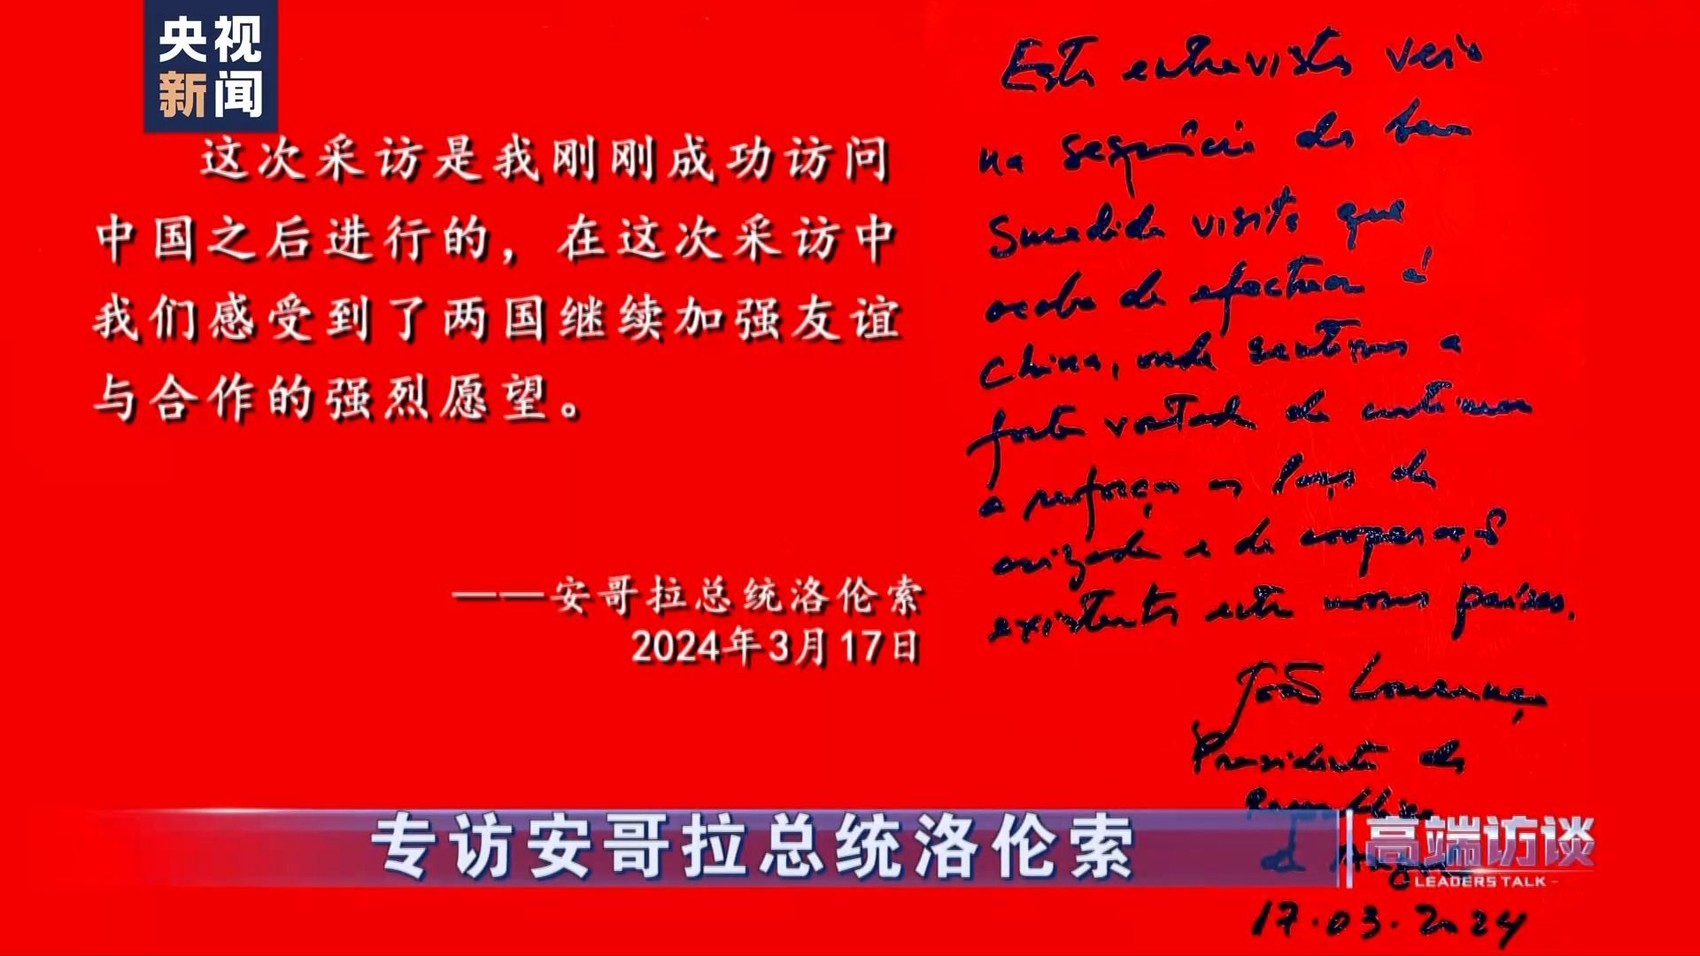 央视
新闻
这次采访是我刚刚成功访问
中国之后进行的，在这次采访中
我们感受到了两国继续加强友谊
与合作的强烈愿望。
——安哥拉总统洛伦索
2024年3月17日
Esta entrevista veio
na sequência da bem
sucedida visita que
acabo de efectuar à
China, onde sentimos a
forte vontade de continuar
a reforçar os laços de
amizade e de cooperação
existente entre nossos países.
João Lourenço
Presidente da
República
de Angola
17.03.2024
专访安哥拉总统洛伦索
高端访谈
LEADERS TALK